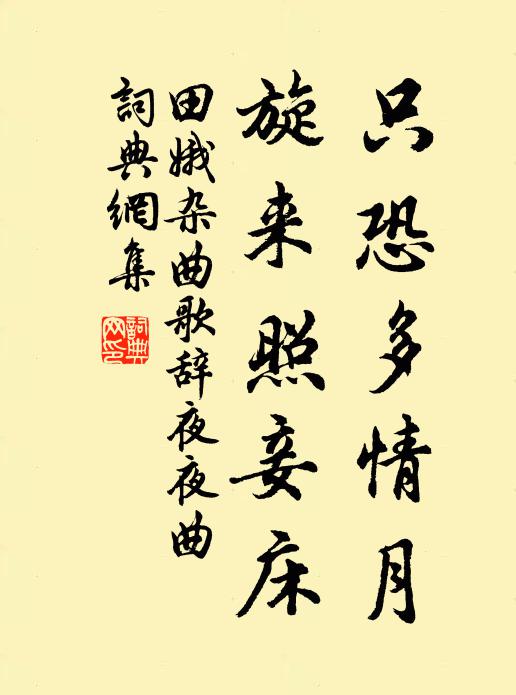 只恐多情月
旋来照妾床
田娥杂曲歌辞夜夜曲
詞典網集
詞典
网印